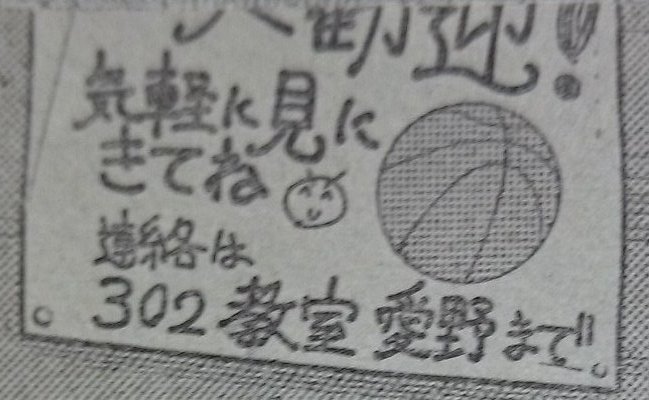 迎!
気軽に見に
きてね
連絡は
302教室 愛野まで!!